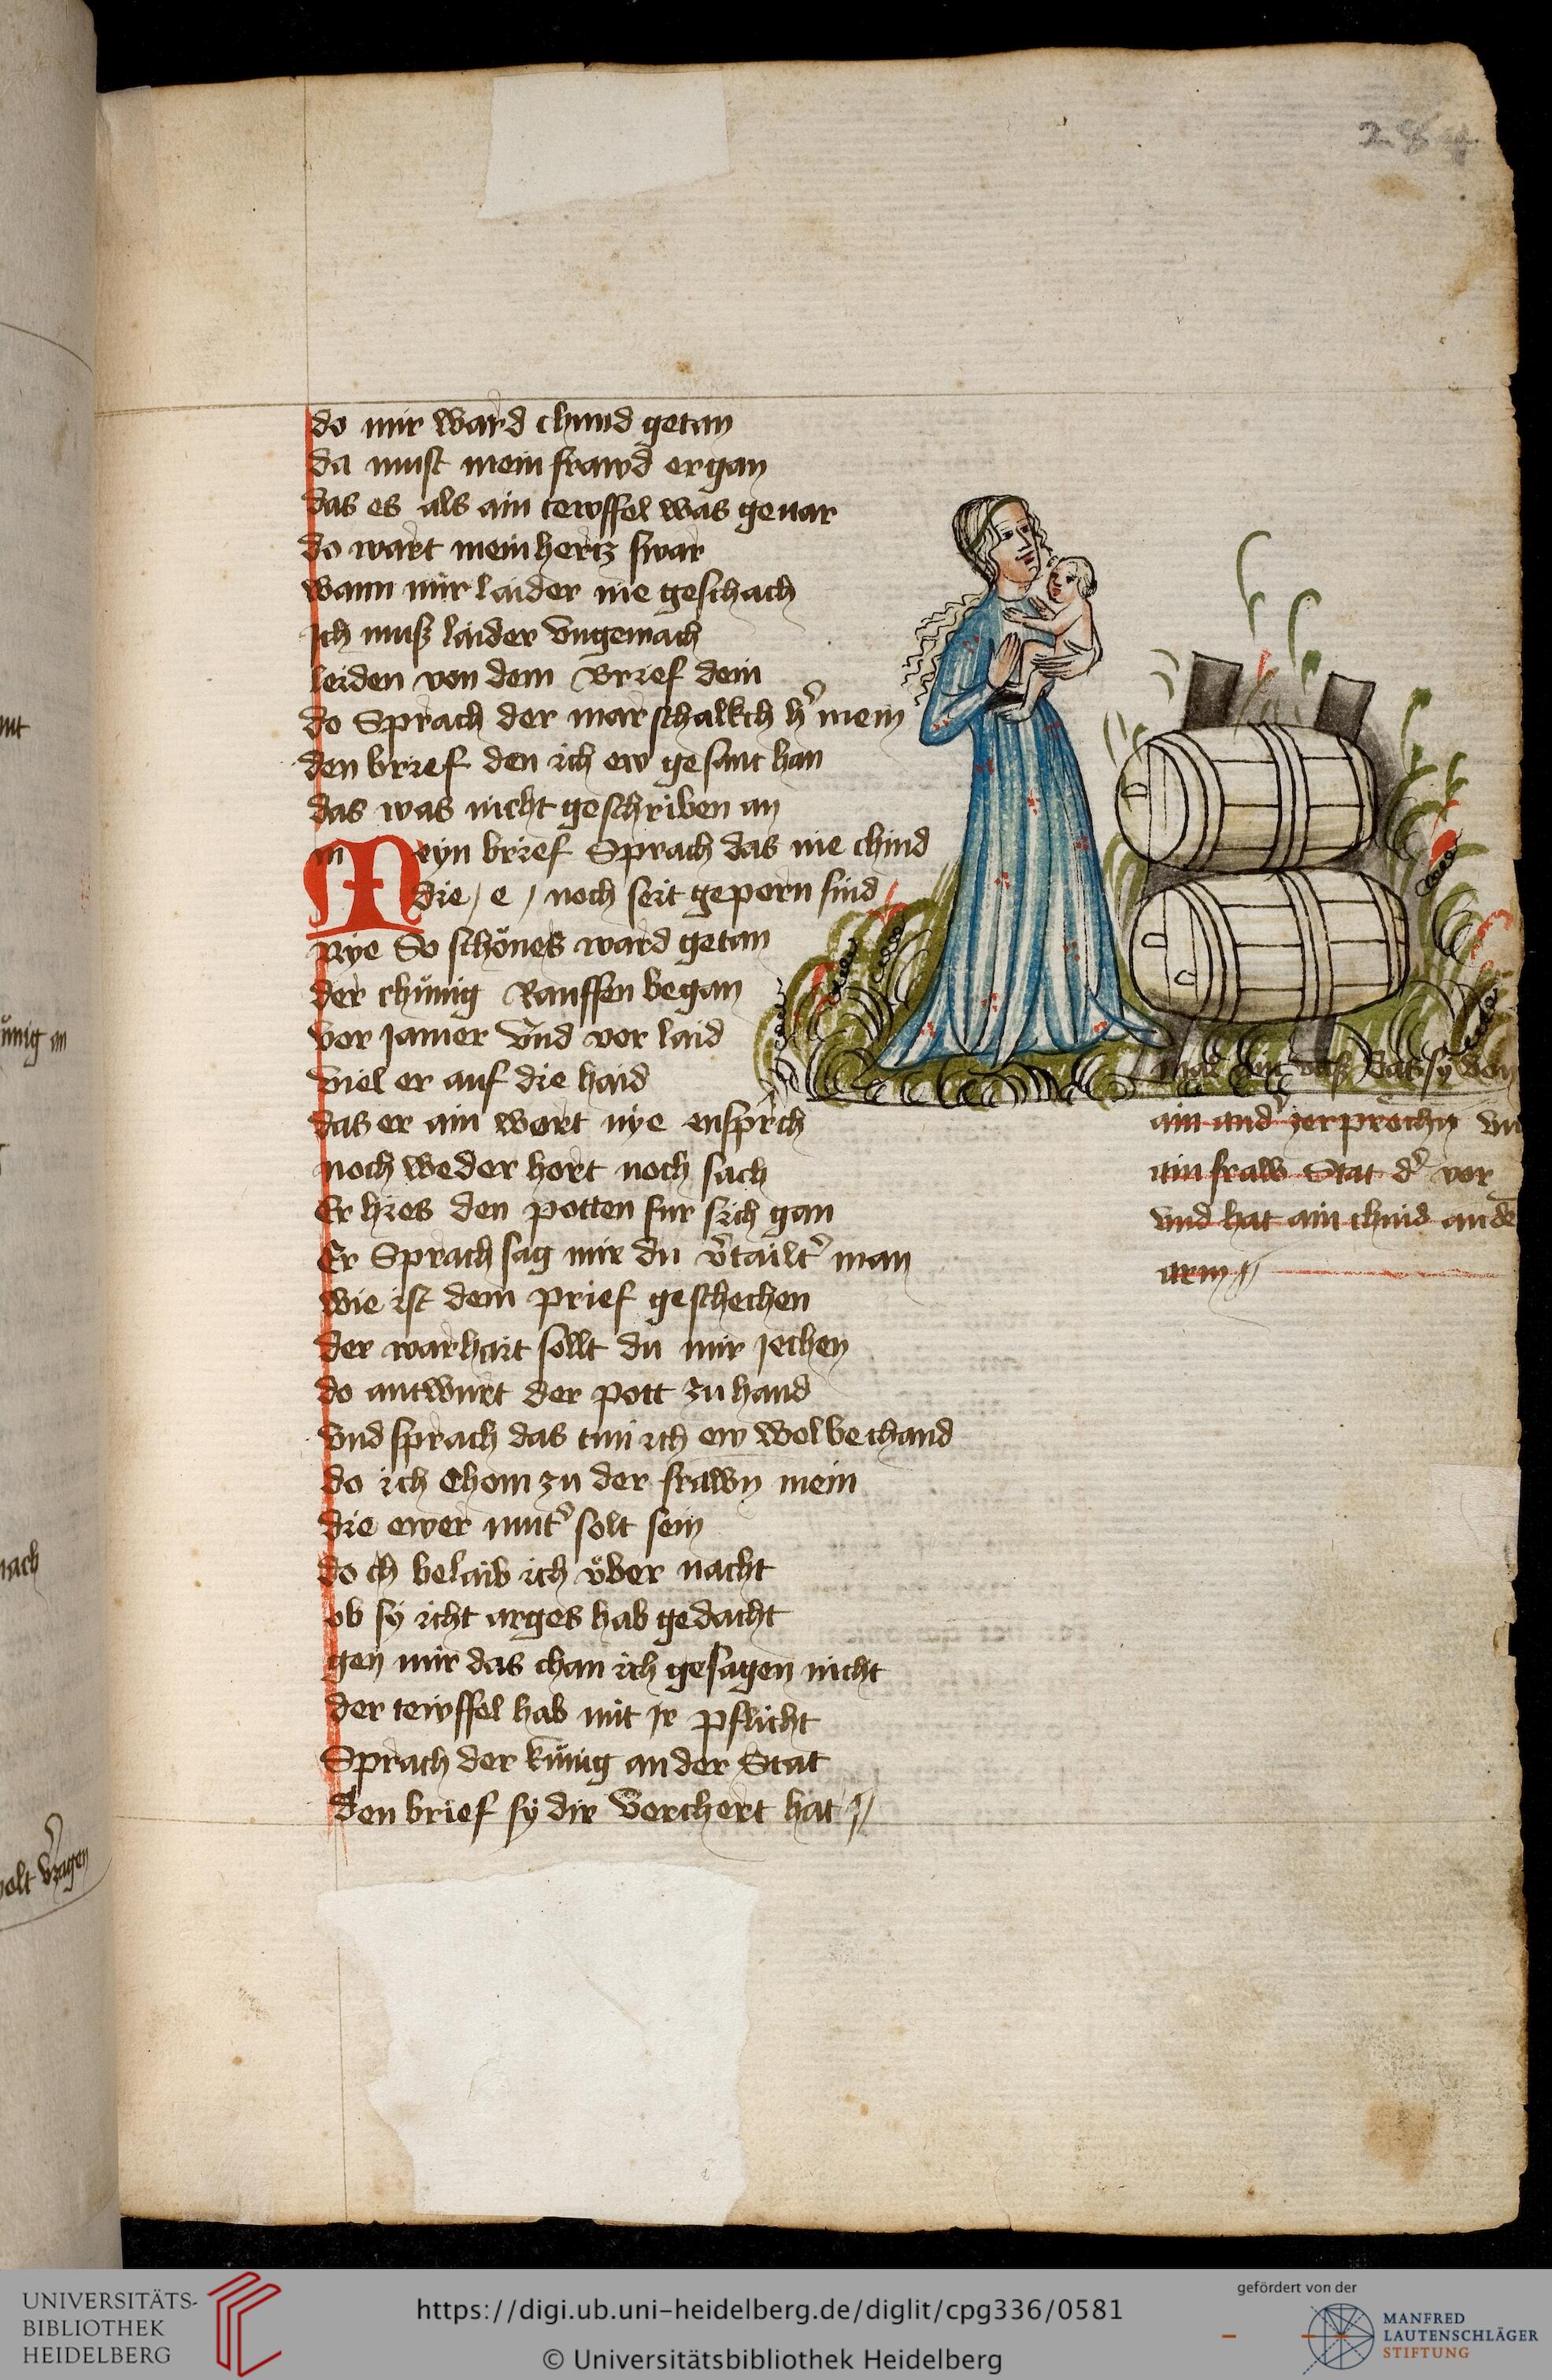 284
do mir ward chund getan
da must mein frawd ergan
das es als ain tewffel was geuar
do wart mein hertz swar
wann mir laider nie geschach
ich muß laider vngemach
leiden von dem Brief dein
do Sprach der marschalkch h̾ mein
den brief den ich ew gesant han
das was nicht geschriben an
m Meyn brief Sprach das nie chind
die / e / noch seit geporn sind
Nye So schönes ward getan
der chünig Rauffen began
vor jamer vnd vor laid
viel er auf die haid
das er ain wort nye ensprch
noch weder hort noch sach
Er hies den potten fur sich gan
Er Sprach sag mir du v̾tailt̾ man
wie ist dem prief geschechen
der warhait sollt du mir jechen
do antwurt der pott zu hand
vnd sprach das tun ich ew wol bechand
do ich Chom zu der frawn mein
die ewer mut̾ solt sein
do ch belaib ich über nacht
ob sy icht arges hab gedacht
gen mir das chan ich gesagen nicht
der tewffel hab mit jr pflicht
Sprach der künig an der Stat
den brief sy dir verchert hat
mal ain vaß das sy von
ain and̾ zerprochn vn
ain fraw Stat d̾ vor
vnd hat ain chind an de
arm
UNIVERSITÄTS-
BIBLIOTHEK
HEIDELBERG
https://digi.ub.uni-heidelberg.de/diglit/cpg336/0581
© Universitätsbibliothek Heidelberg
gefördert von der
MANFRED
LAUTENSCHLÄGER
STIFTUNG